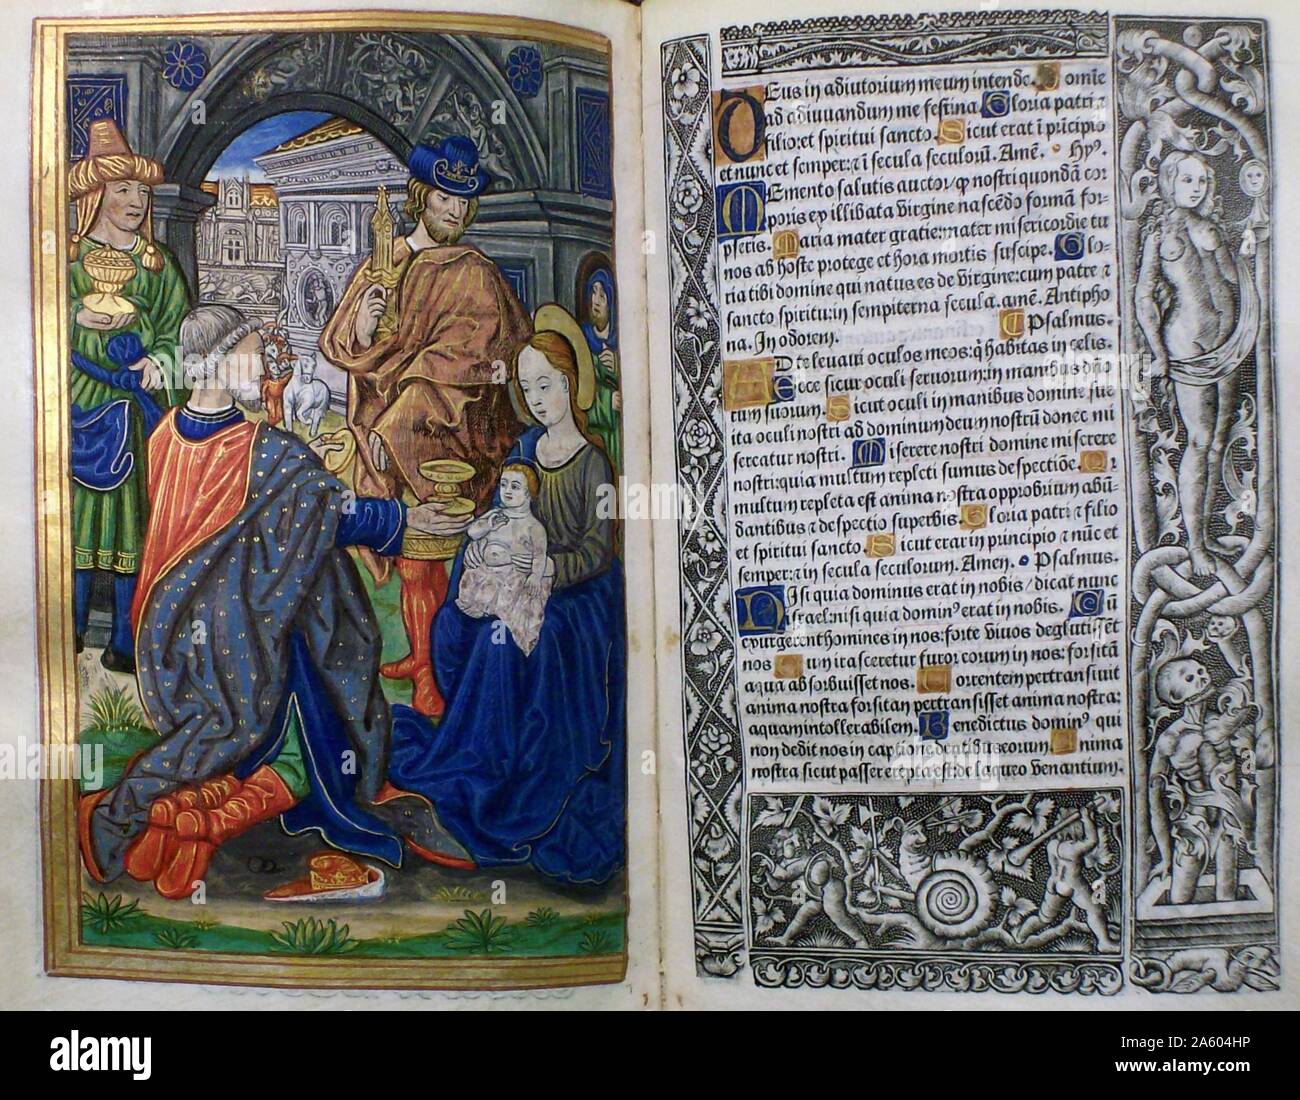 DEus in adiutorium meum intende. Domīe
ad adiuvandum me festina. Gloria patri ⁊
filio: et spiritui sancto. Sicut erat ī prīncipio
et nunc et semper: ⁊ ī secula seculorū. Amē. Hyꝰ.
MEmento salutis auctor / ꝙ nostri quondā cor
poris ex illibata virgine nascēdo formā sum
pseris. Maria mater gratie: mater misericordie tu
nos ab hoste protege et hora mortis suscipe. Glo
ria tibi domine qui natus es de virgine: cum patre ⁊
sancto spiritu: in sempiterna secula. amē. Antipho
na. In odorem. Psalmus.
AD te levavi oculos meos: q̄ habitas in celis.
Ecce sicut oculi servorum: in manibus dn̄o
rum suorum. Sicut oculi in manibus domine sue
ita oculi nostri ad dominum deum nostrū donec mi
sereatur nostri. Miserere nostri domine miserere
nostri: quia multum repleti sumus despectiōe. Qr
multum repleta est anima nostra opprobrium abū
dantibus ⁊ despectio superbis. Gloria patri ⁊ filio
et spiritui sancto. Sicut erat in principio ⁊ nūc et
semper: ⁊ in secula seculorum. Amen. Psalmus.
NIsi quia dominus erat in nobis / dicat nunc
Israel: nisi quia dominꝰ erat in nobis. Cū
exurgerent homines in nos: forte vivos deglutissēt
nos Cum irasceretur furor eorum in nos: forsitā
aqua absorbuisset nos. Torrentem pertransivit
anima nostra: forsitan pertransisset anima nostra:
aquam intollerabilem. Benedictus dominꝰ qui
non dedit nos in captionē dentibus eorum. Anima
nostra sicut passer erepta est: de laqueo venantium.
alamy
Image ID: 2A604HP
www.alamy.com